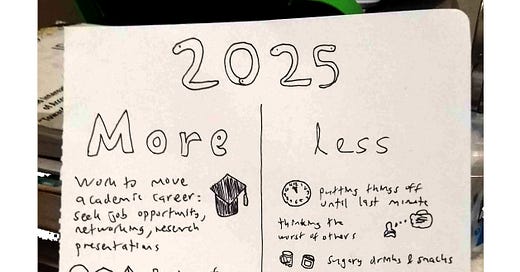 2025
More
less
Work to move
academic career:
seek job opportunity,
networking, research
presentations
putting things off
until last minute
thinking the
worst of others
sugary drinks & snacks